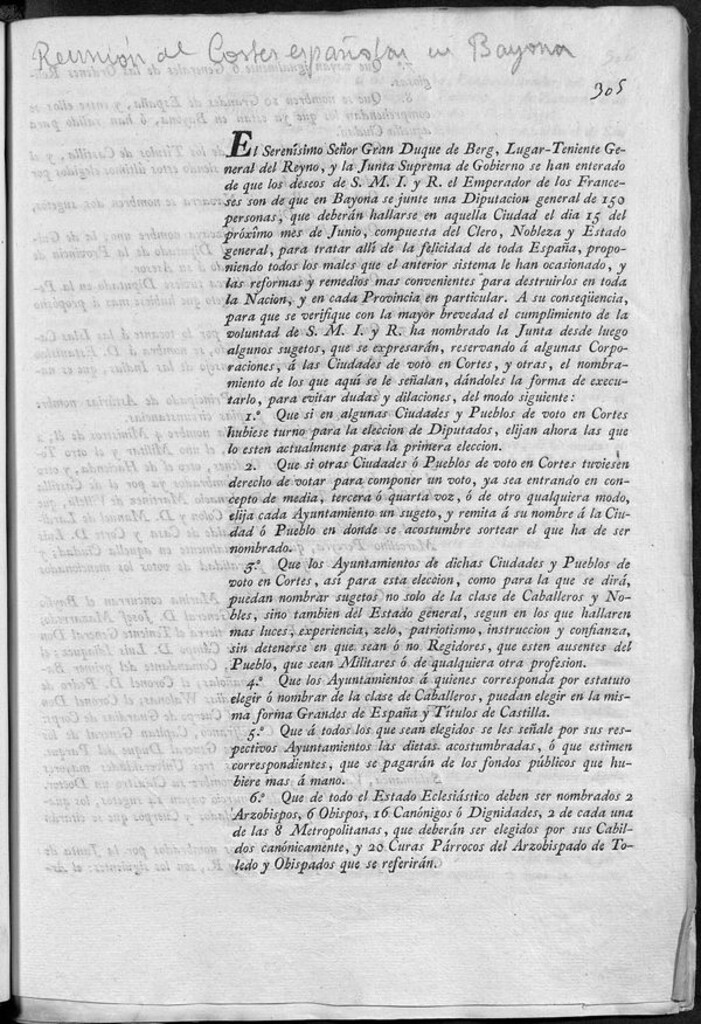 Reunión de Cortes españolas en Bayona
305
El Serenísimo Señor Gran Duque de Berg, Lugar-Teniente Ge-
neral del Reyno, y la Junta Suprema de Gobierno se han enterado
de que los deseos de S. M. I. y R. el Emperador de los France-
ses son de que en Bayona se junte una Diputacion general de 150
personas, que deberán hallarse en aquella Ciudad el dia 15 del
próximo mes de Junio, compuesta del Clero, Nobleza y Estado
general, para tratar allí de la felicidad de toda España, propo-
niendo todos los males que el anterior sistema le han ocasionado, y
las reformas y remedios mas convenientes para destruirlos en toda
la Nacion, y en cada Provincia en particular. A su conseqüencia,
para que se verifique con la mayor brevedad el cumplimiento de la
voluntad de S. M. I. y R. ha nombrado la Junta desde luego
algunos sugetos, que se expresarán, reservando á algunas Corpo-
raciones, á las Ciudades de voto en Cortes, y otras, el nombra-
miento de los que aquí se le señalan, dándoles la forma de execu-
tarlo, para evitar dudas y dilaciones, del modo siguiente:
1.º Que si en algunas Ciudades y Pueblos de voto en Cortes
hubiese turno para la eleccion de Diputados, elijan ahora las que
lo esten actualmente para la primera eleccion.
2. Que si otras Ciudades ó Pueblos de voto en Cortes tuviesen
derecho de votar para componer un voto, ya sea entrando en con-
cepto de media, tercera ó quarta voz, ó de otro qualquiera modo,
elija cada Ayuntamiento un sugeto, y remita á su nombre á la Ciu-
dad ó Pueblo en donde se acostumbre sortear el que ha de ser
nombrado.
3.º Que los Ayuntamientos de dichas Ciudades y Pueblos de
voto en Cortes, así para esta eleccion, como para la que se dirá,
puedan nombrar sugetos no solo de la clase de Caballeros y No-
bles, sino tambien del Estado general, segun en los que hallaren
mas luces, experiencia, zelo, patriotismo, instruccion y confianza,
sin detenerse en que sean ó no Regidores, que esten ausentes del
Pueblo, que sean Militares ó de qualquiera otra profesion.
4.º Que los Ayuntamientos á quienes corresponda por estatuto
elegir ó nombrar de la clase de Caballeros, puedan elegir en la mis-
ma forma Grandes de España y Títulos de Castilla.
5.º Que á todos los que sean elegidos se les señale por sus res-
pectivos Ayuntamientos las dietas acostumbradas, ó que estimen
correspondientes, que se pagarán de los fondos públicos que hu-
biere mas á mano.
6.º Que de todo el Estado Eclesiástico deben ser nombrados 2
Arzobispos, 6 Obispos, 16 Canónigos ó Dignidades, 2 de cada una
de las 8 Metropolitanas, que deberán ser elegidos por sus Cabil-
dos canónicamente, y 20 Curas Párrocos del Arzobispado de To-
ledo y Obispados que se referirán.